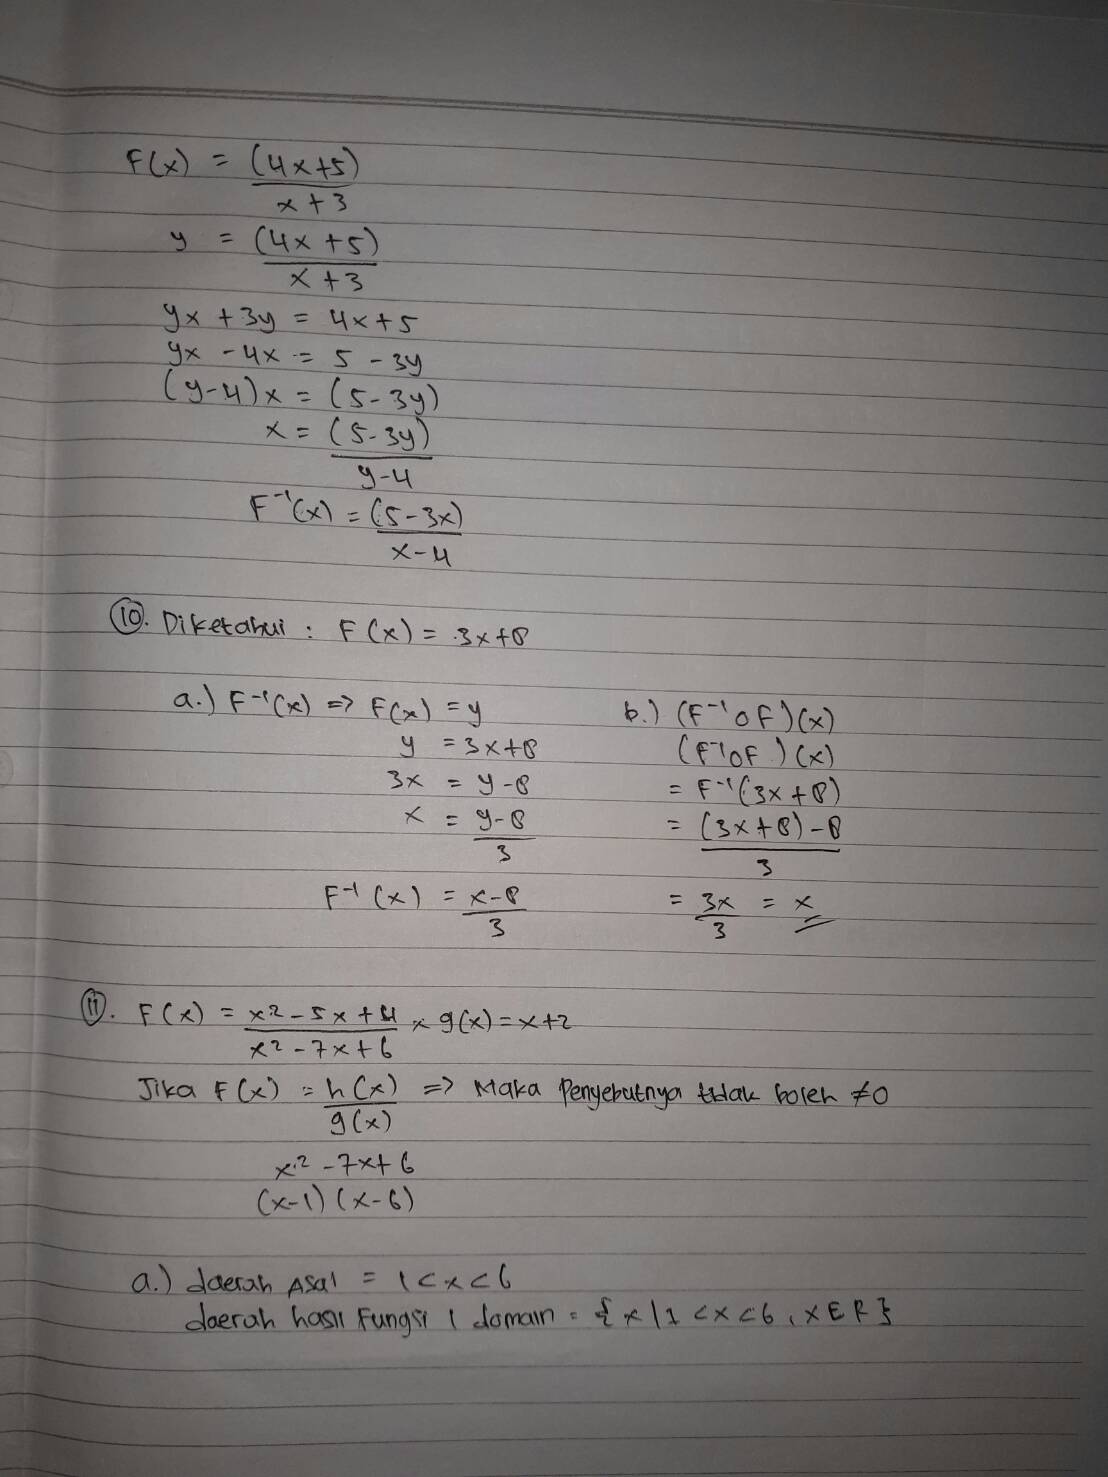 F(x) = (4x+5)
x+3
y = (4x+5)
x+3
yx +3y = 4x+5
yx - 4x = 5 - 3y
(y-4)x = (5-3y)
x = (5-3y)
y-4
F⁻¹(x) = (5-3x)
x-4
10. Diketahui : F(x) = 3x+8
a.) F⁻¹(x) => F(x) = y
y = 3x+8
3x = y-8
x = y-8
3
F⁻¹(x) = x-8
3
b.) (F⁻¹oF)(x)
(F⁻¹oF)(x)
= F⁻¹(3x+8)
= (3x+8)-8
3
= 3x = x
3
11. F(x) = x²-5x+4 x g(x)=x+2
x²-7x+6
Jika F(x) = h(x) => Maka Penyebutnya tidak boleh ≠0
g(x)
x²-7x+6
(x-1)(x-6)
a.) daerah Asal = 1<x<6
daerah hasil Fungsi / domain = {x|1<x<6, x∈R}